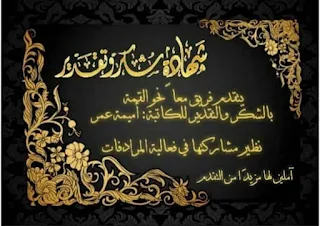 شهادة شكر وتقدير
يتقدم فريق معاً نحو القمة
بالشكر والتقدير للكاتبة: أميمة عمر
نظير مشاركتها في فعالية المرادفات
آملين لها مزيدًا من التقدم